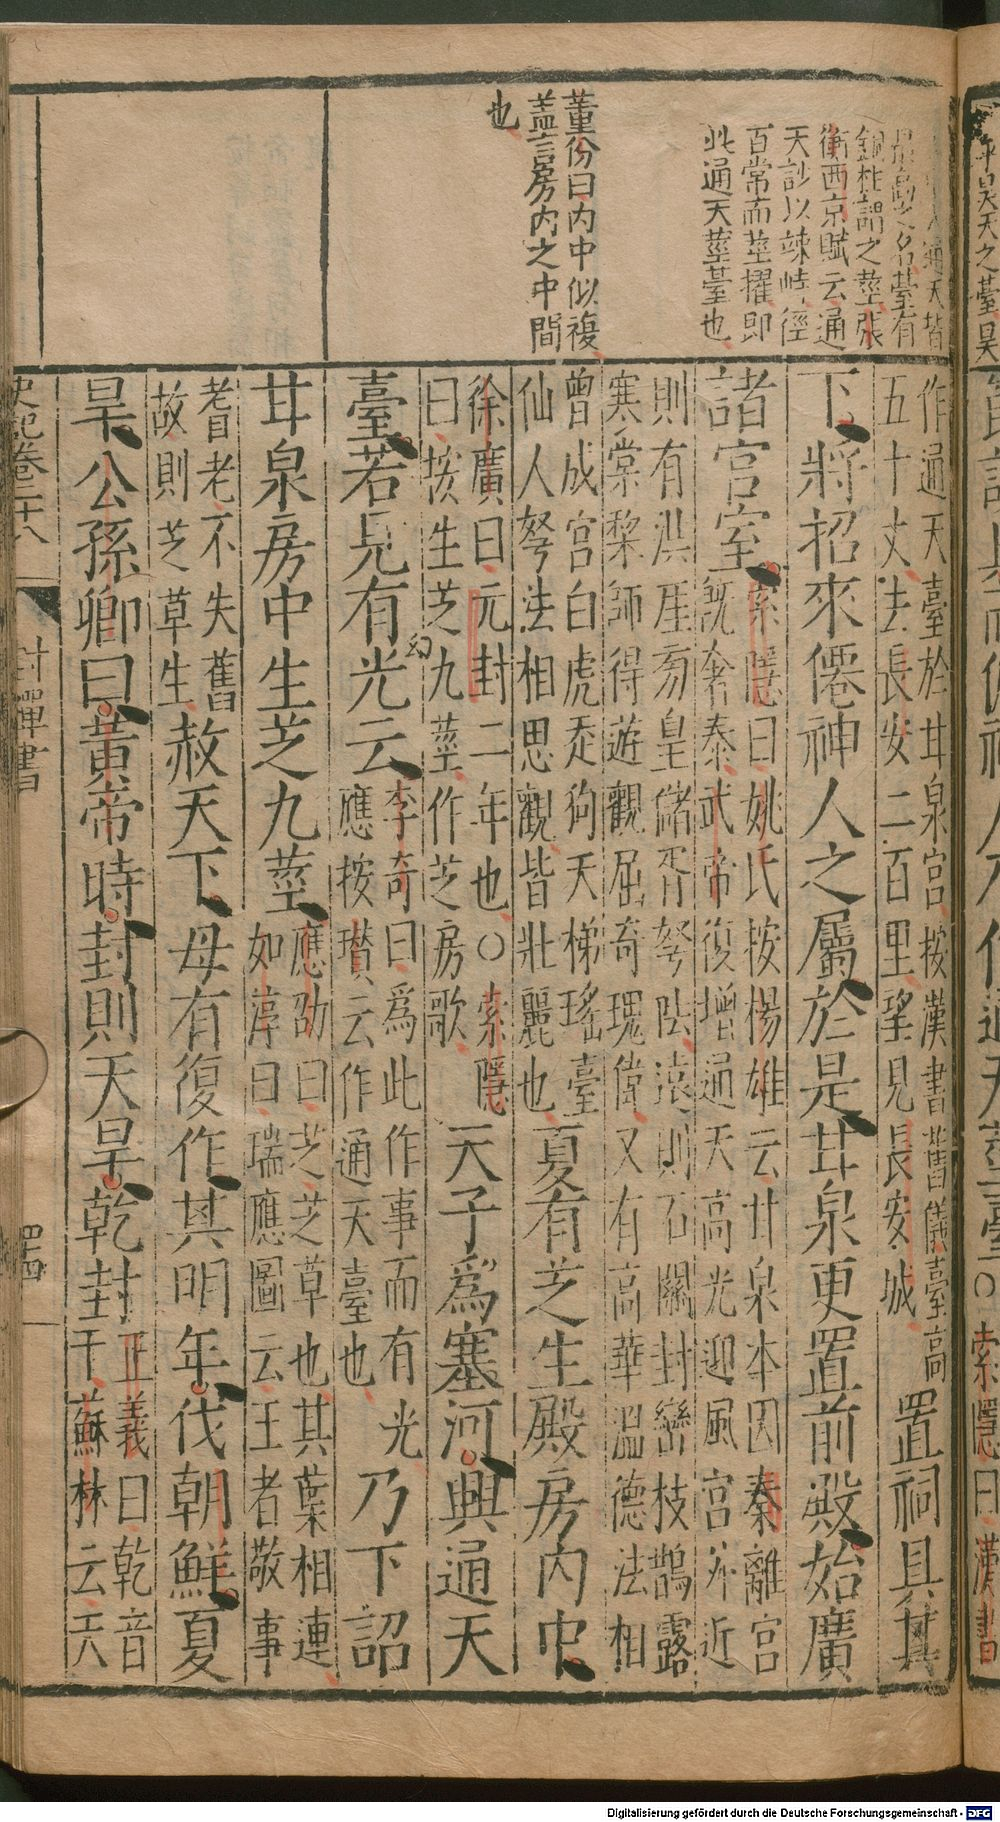 天通天皆
最高之名臺有
銅柱謂之莖張
衡西京賦云通
天訬以竦峙徑
百常而莖擢即
此通天莖臺也
董份曰内中似複
盖言房内之中間
也
作通天臺於甘泉宫按漢書舊儀臺高
五十丈去長安二百里望見長安城
置祠具其
下將招來僊神人之屬於是甘泉更置前殿始廣
諸宫室
索隱曰姚氏按楊雄云甘泉本因秦離宫
旣奢泰武帝復增通天高光迎風宫外近
則有洪厓旁皇儲胥弩阹遠則石關封巒枝鵲露
寒棠棃師得遊觀屈奇瑰偉又有高華温德法相
曾成宫白虎走狗天梯瑤臺
仙人弩法相思觀皆壯麗也
夏有芝生殿房内中
徐廣曰元封二年也○索隱
曰按生芝九莖作芝房歌
天子爲塞河興通天
臺若見有光云
李奇曰爲此作事而有光
應按瓚云作通天臺也
乃下詔
甘泉房中生芝九莖
應劭曰芝芝草也其葉相連
如淳曰瑞應圖云王者敬事
耆老不失舊
故則芝草生
赦天下毋有復作其明年伐朝鮮夏
旱公孫卿曰黃帝時封則天旱乾封
正義曰乾音
干蘇林云天
史記卷二十八
封禪書
四十四
Digitalisierung gefördert durch die Deutsche Forschungsgemeinschaft - DFG